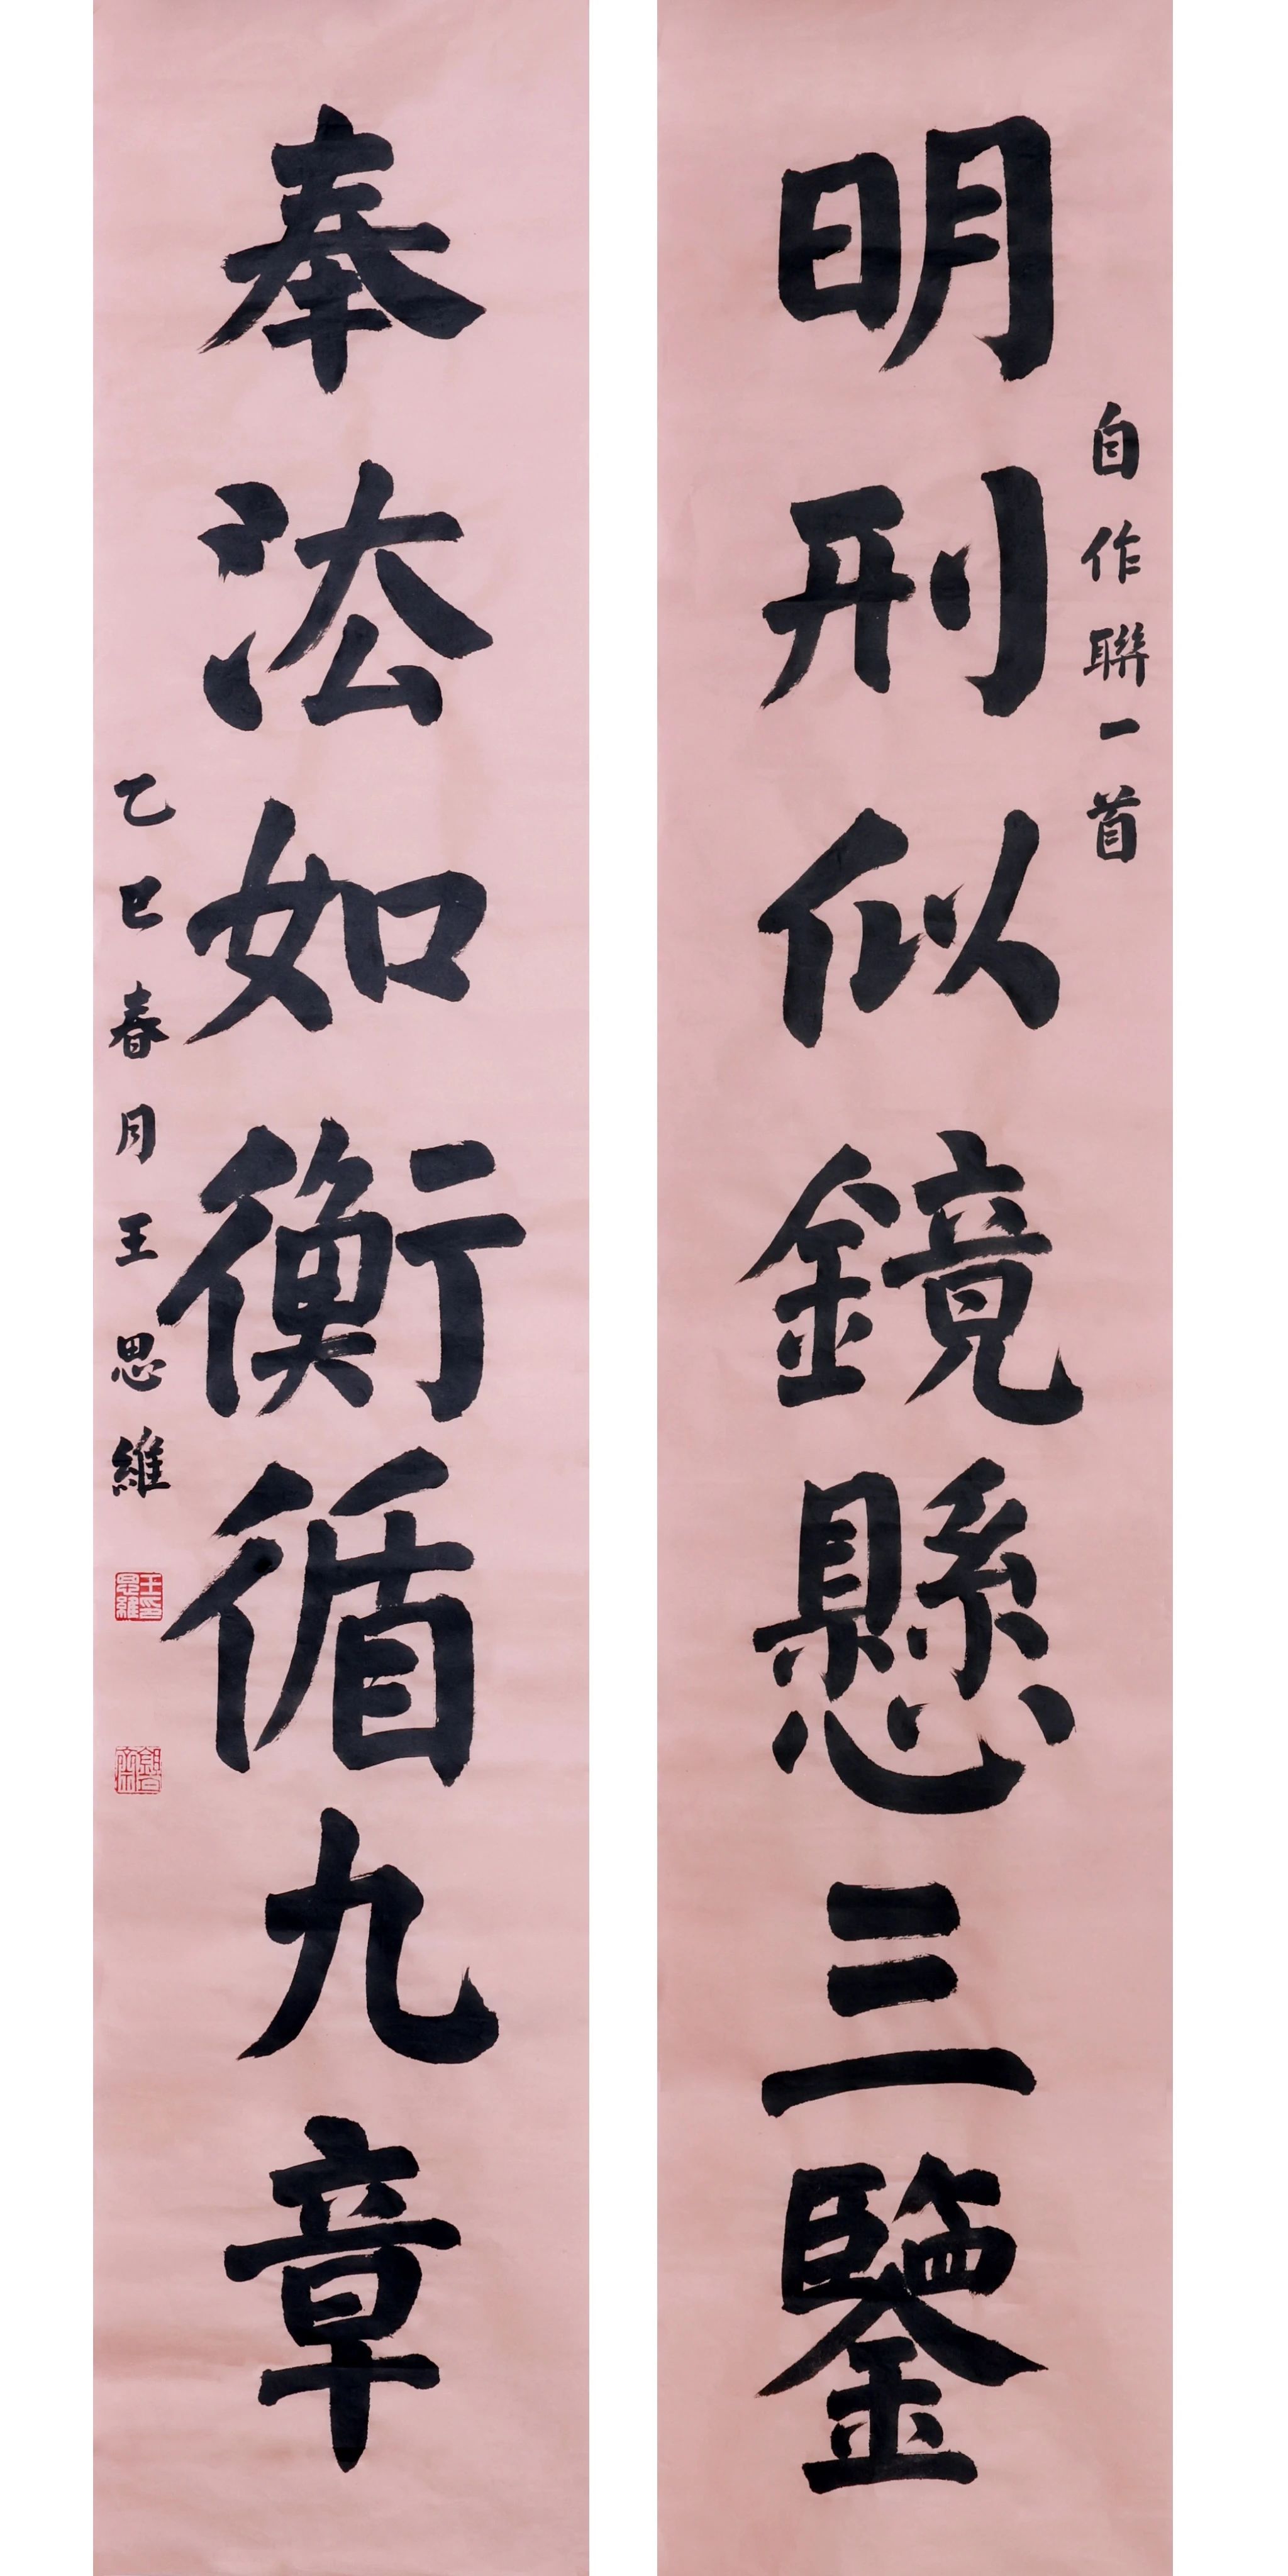 自作聯一首
明刑似鏡懸三鑒
奉法如衡循九章
乙巳春月王思維
王思維印